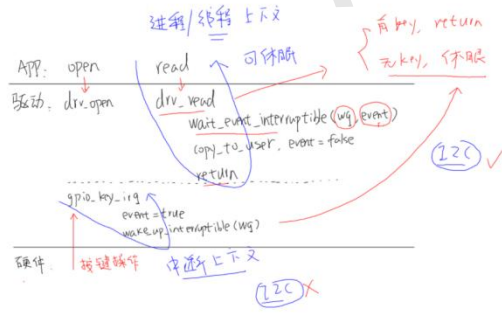 进程/线程 上下文
有key, return
无key, 休眠
APP: open read 可休眠
驱动: drv_open drv_read
wait_event_interruptible(wq, event)
copy_to_user, event=false
return
I2C √
gpio_key_irq
event=true
wake_up_interruptible(wq)
硬件: 按键操作 中断上下文
I2C ×